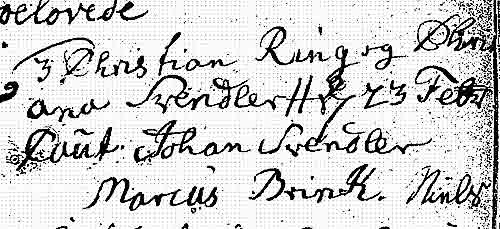 oelovede
3 Christian Ring og Chri
ana Svendler 23 Febr
Caut. Johan Svendler
Marcus Brinck. Niels